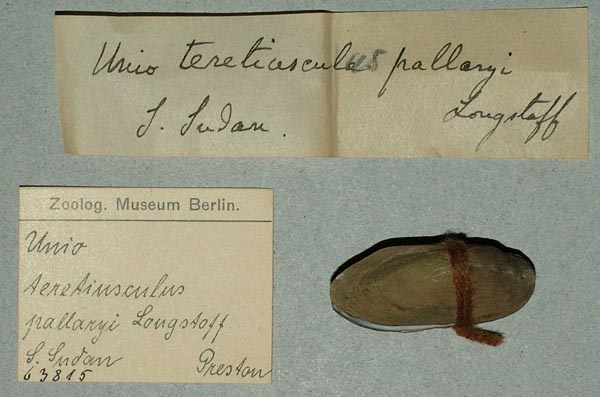 Unio teretiusculus pallaryi
S. Sudan. Longstaff
Zoolog. Museum Berlin.
Unio
teretiusculus
pallaryi Longstoff
S. Sudan Preston
63815